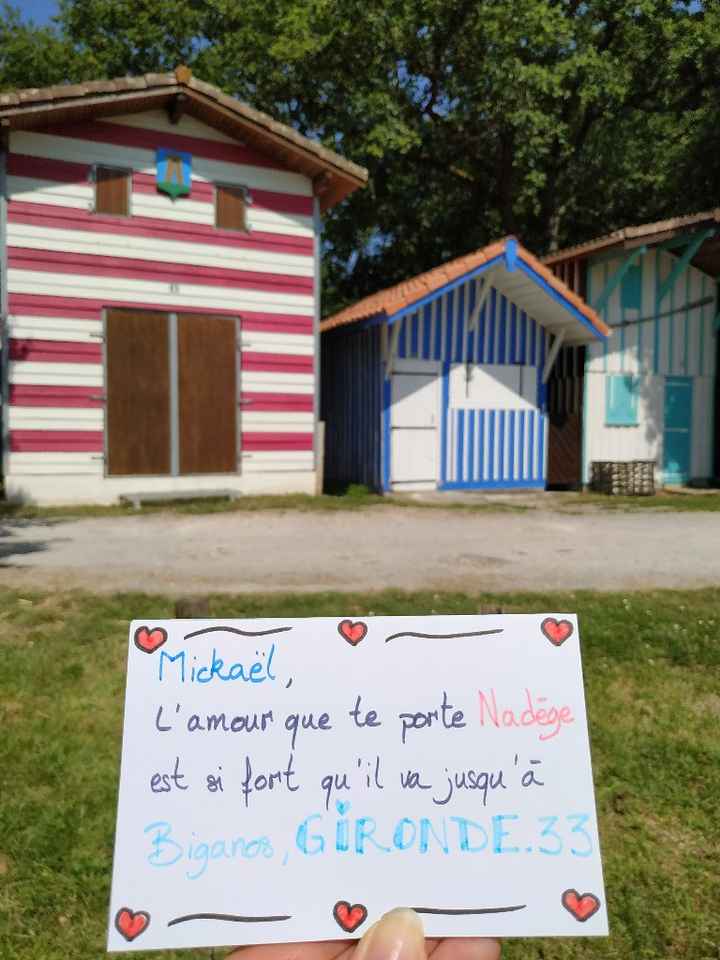 Mickaël,
L'amour que te porte Nadège
est si fort qu'il va jusqu'à
Biganos, GIRONDE.33